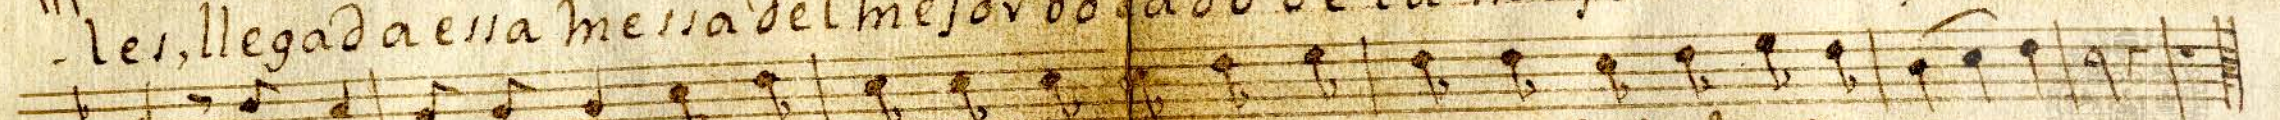 les, llegad a essa messa del mejor bocado de la